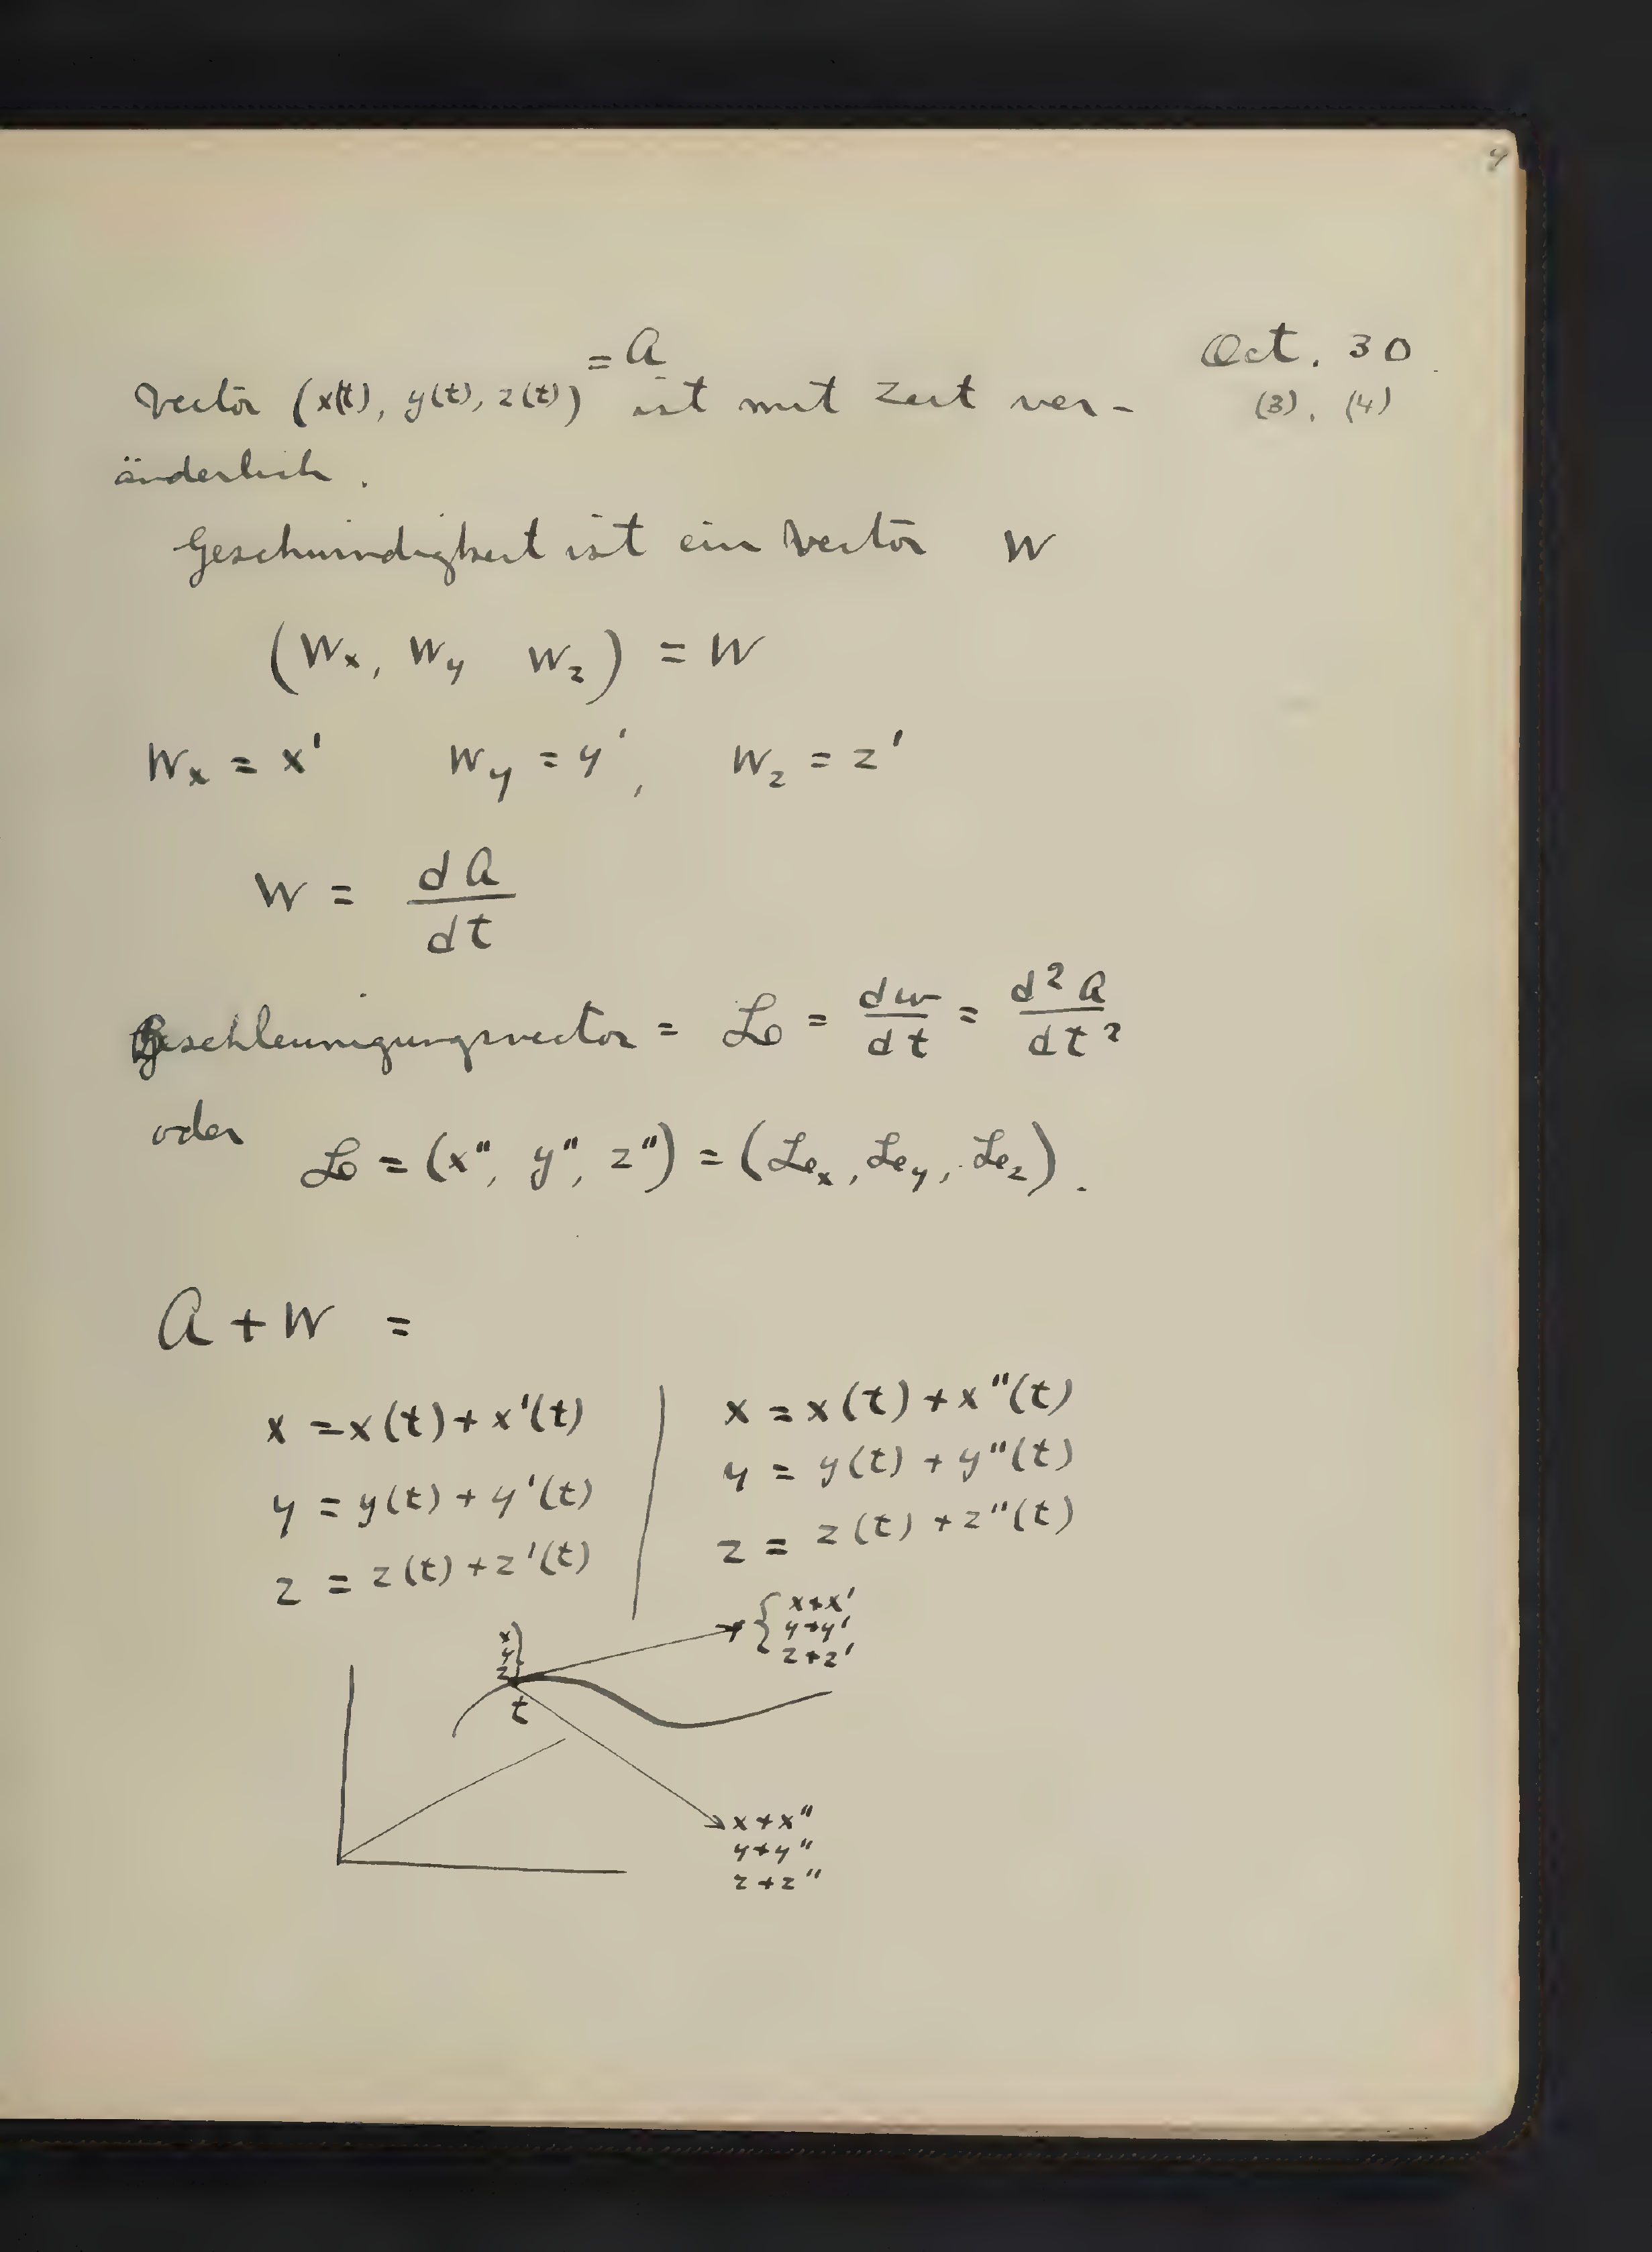 4
= A
Oct. 30.
Vector (x(t), y(t), z(t)) ist mit Zeit ver-
(3), (4)
änderlich.
Geschwindigkeit ist ein Vector W
(Wx, Wy Wz) = W
Wx = x' Wy = y', Wz = z'
W = dA/dt
Beschleunigungsvector = Lo = dw/dt = d²A/dt²
oder
Lo = (x'', y'', z'') = (Lex, Ley, Lez).
A + W =
x = x(t) + x'(t) | x = x(t) + x''(t)
y = y(t) + y'(t) | y = y(t) + y''(t)
z = z(t) + z'(t) | z = z(t) + z''(t)
x
y
z }
{ x+x'
y+y'
z+z'
t
x+x''
y+y''
z+z''